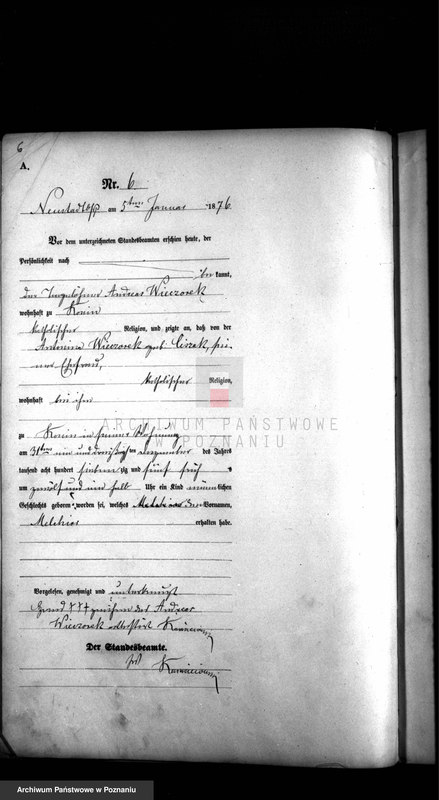 6
A.
Nr. 6
Neustadt b/P am 5ten Januar 1876
Vor dem unterzeichneten Standesbeamten erschien heute, der
Persönlichkeit nach
bekannt,
der Tagelöhner Andreas Wieczorek
wohnhaft zu Konin
katholischer Religion, und zeigte an, daß von der
Antonina Wieczorek geb. Cizak, sei-
ner Ehefrau,
katholischer Religion,
wohnhaft bei ihm
ARCHIWUM PAŃSTWOWE
W POZNANIU
zu Konin in seiner Wohnung
am 31ten ein und dreißigsten Dezember des Jahres
tausend acht hundert siebenzig und fünf früh
um zwölf und ein halb Uhr ein Kind männlichen
Geschlechts geboren worden sei, welches den Vornamen,
Melchior erhalten habe.
Vorgelesen, genehmigt und unterkreuzt
Andreas
Wieczorek attestirt
Der Standesbeamte.
Archiwum Państwowe w Poznaniu